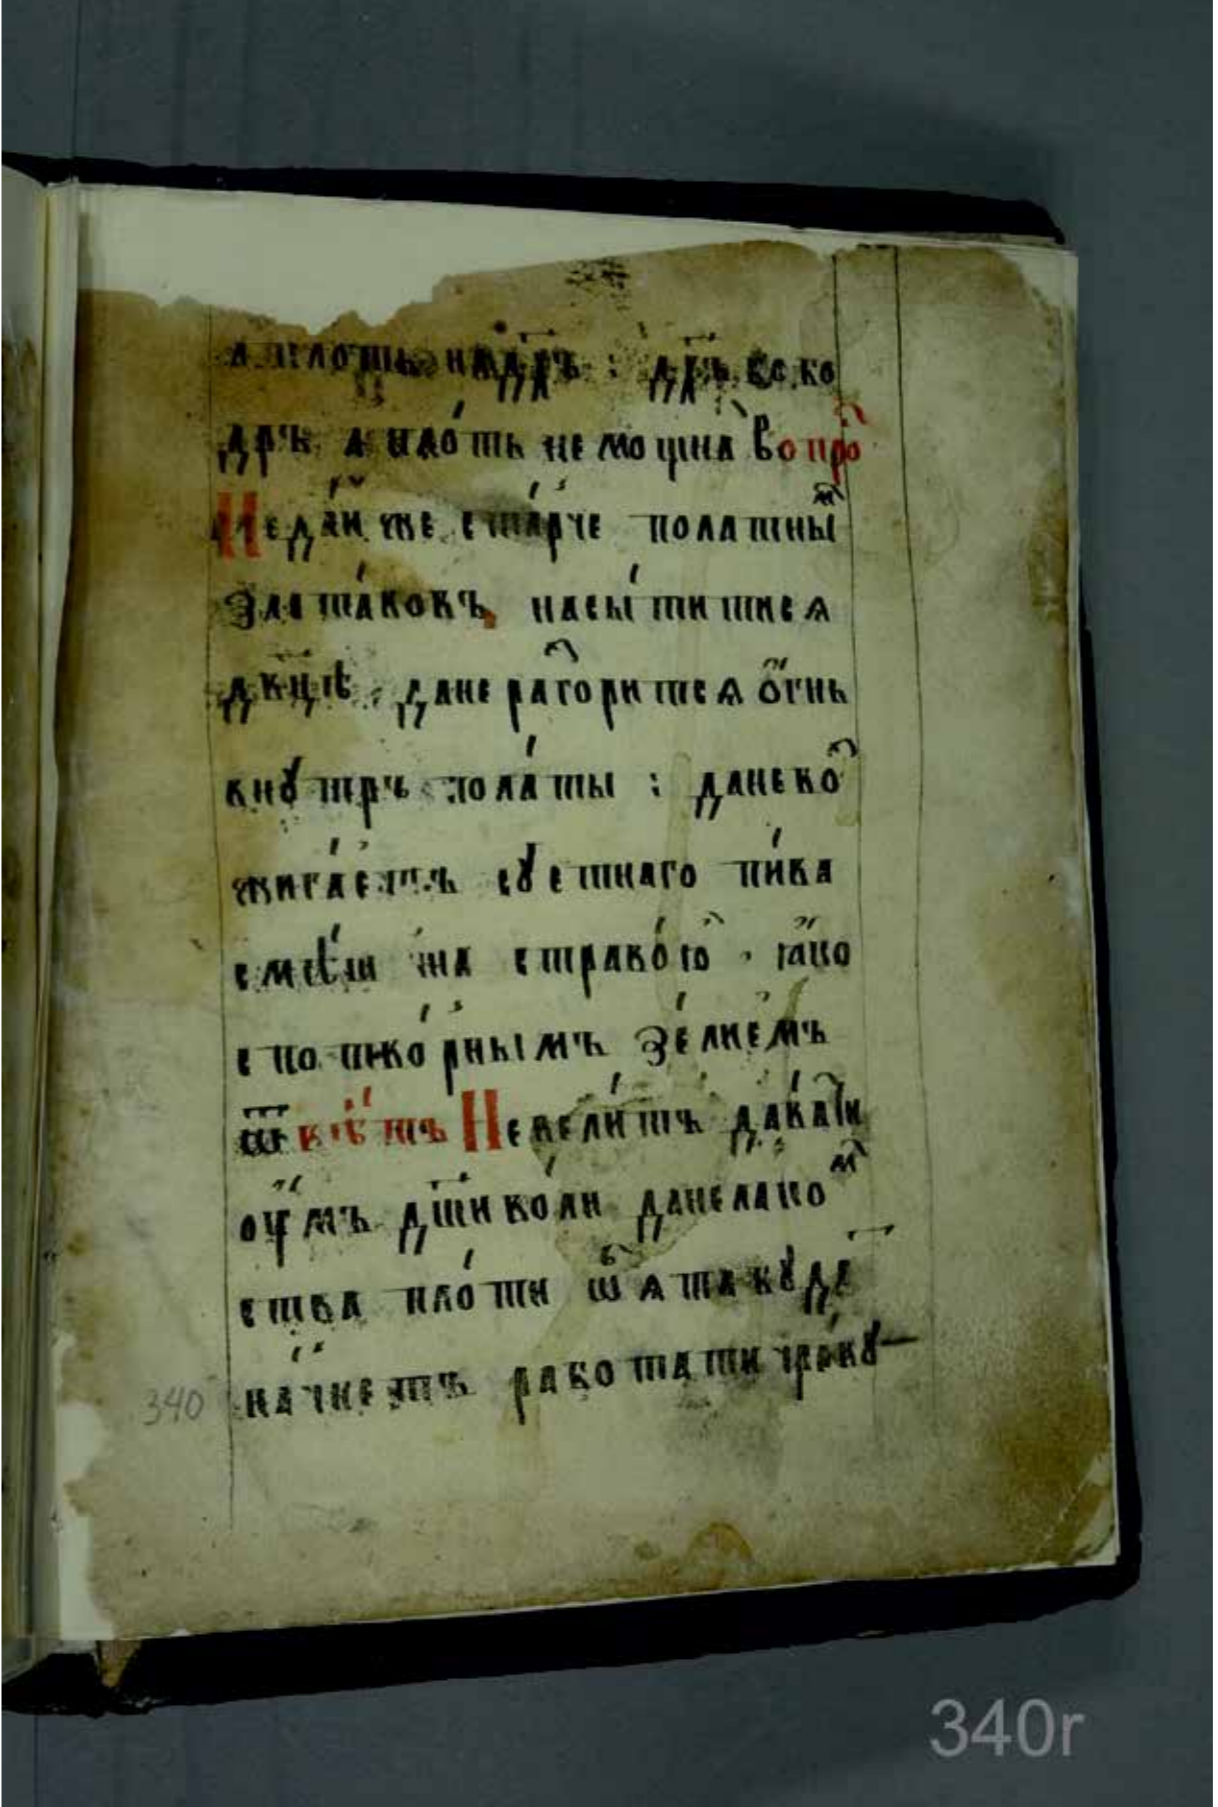 а плоть на дх҃ъ : дх҃ъ бо бо
дръ а пло́ть немощна во про̑
Не да́й же ста́рче полатны̑м
злаштако́въ насы́титися
дв҃цѣ , да не раго̑ритсѧ о҆́гнь
внꙋтръ пола́ты : да не во̑
жига́етъ сꙋетнаго пи́ва
смѣ́ша на страво́ю҆ · ꙗ҆́ко
с потво́рнымъ зе́лиемъ
ѿвѣ́тъ Невели́тъ дава́ти
ѹ҆́мъ дш҃и воли да не лако̑м
ства пло́ти ѿѧта бꙋде̑
на́чнетъ работати чре́вꙋ
340
340r